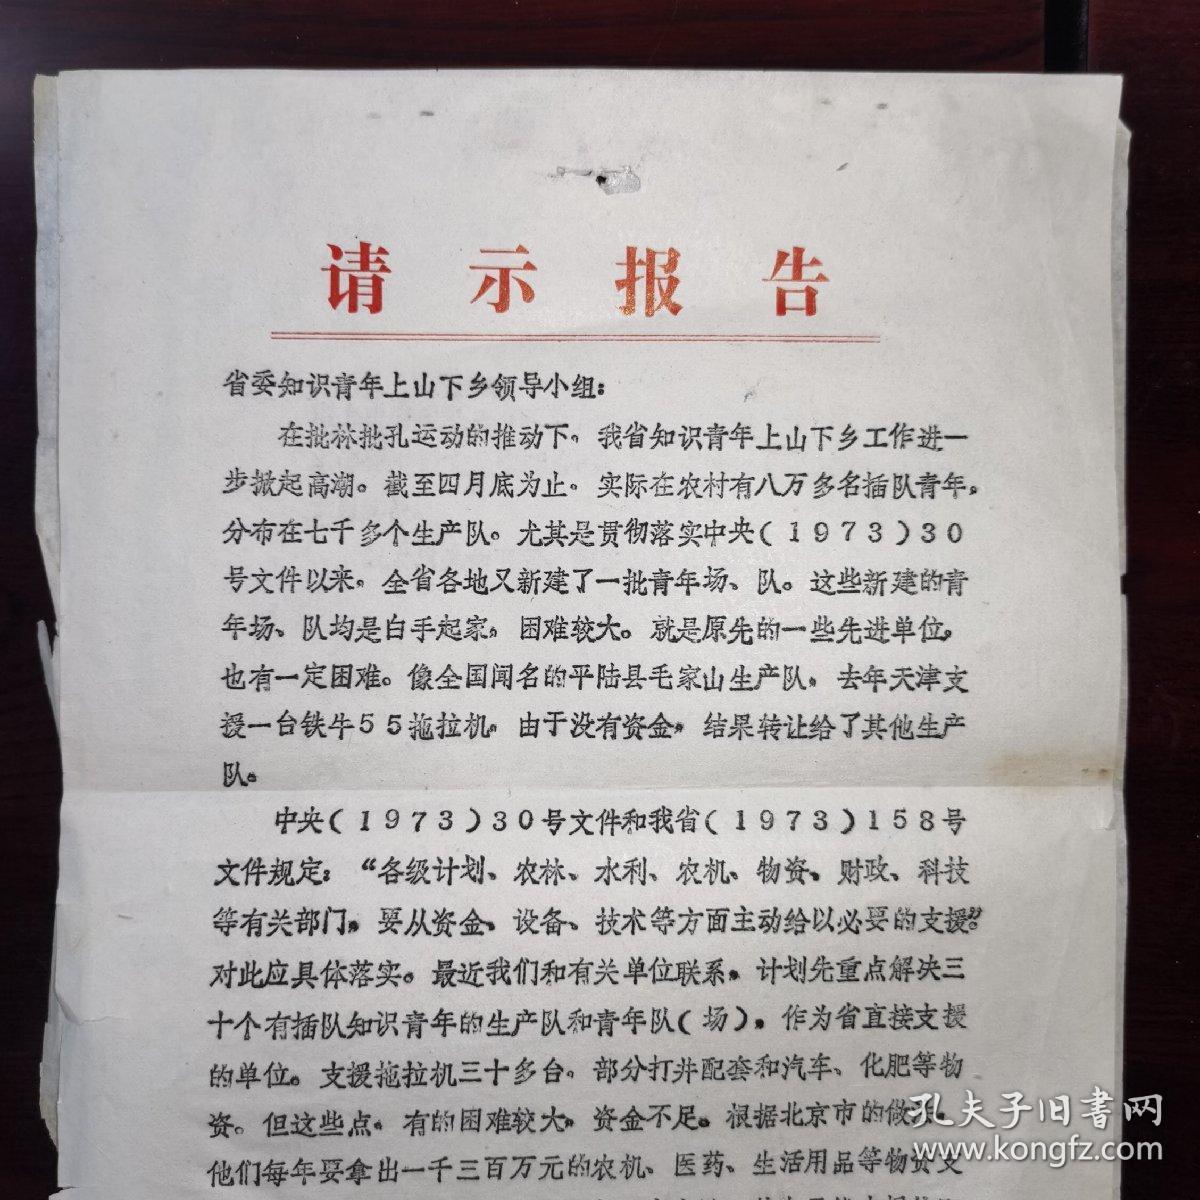 请示报告
省委知识青年上山下乡领导小组：
在批林批孔运动的推动下，我省知识青年上山下乡工作进一
步掀起高潮。截至四月底为止，实际在农村有八万多名插队青年，
分布在七千多个生产队。尤其是贯彻落实中央（1973）30
号文件以来，全省各地又新建了一批青年场、队。这些新建的青
年场、队均是白手起家，困难较大。就是原先的一些先进单位，
也有一定困难。像全国闻名的平陆县毛家山生产队，去年天津支
援一台铁牛55拖拉机，由于没有资金，结果转让给了其他生产
队。
中央（1973）30号文件和我省（1973）158号
文件规定：“各级计划、农林、水利、农机、物资、财政、科技
等有关部门，要从资金、设备、技术等方面主动给以必要的支援。”
对此应具体落实。最近我们和有关单位联系，计划先重点解决三
十个有插队知识青年的生产队和青年队（场），作为省直接支援
的单位。支援拖拉机三十多台，部分打井配套和汽车、化肥等物
资。但这些点，有的困难较大，资金不足。根据北京市的做
他们每年要拿出一千三百万元的农机、医药、生活用品等物资支
孔夫子旧書网
www.kongfz.com